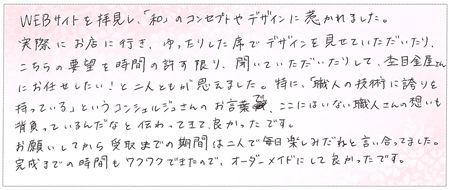 WEBサイトを拝見し、「和」のコンセプトやデザインに惹かれました。
実際にお店に行き、ゆったりした席でデザインを見せていただいたり、
こちらの要望を時間の許す限り、聞いていただいたりして、杢目金屋さん
にお任せしたい!と二人ともが思えました。特に、「職人の技術に誇りを
持っている」というコンシェルジュさんのお言葉で、ここにはいない職人さんの想いも
背負っているんだなと伝わってきて、良かったです。
お願いしてから受取までの期間は二人で毎日楽しみだねと言い合ってました。
完成までの時間もワクワクできたので、オーダーメイドにして良かったです。